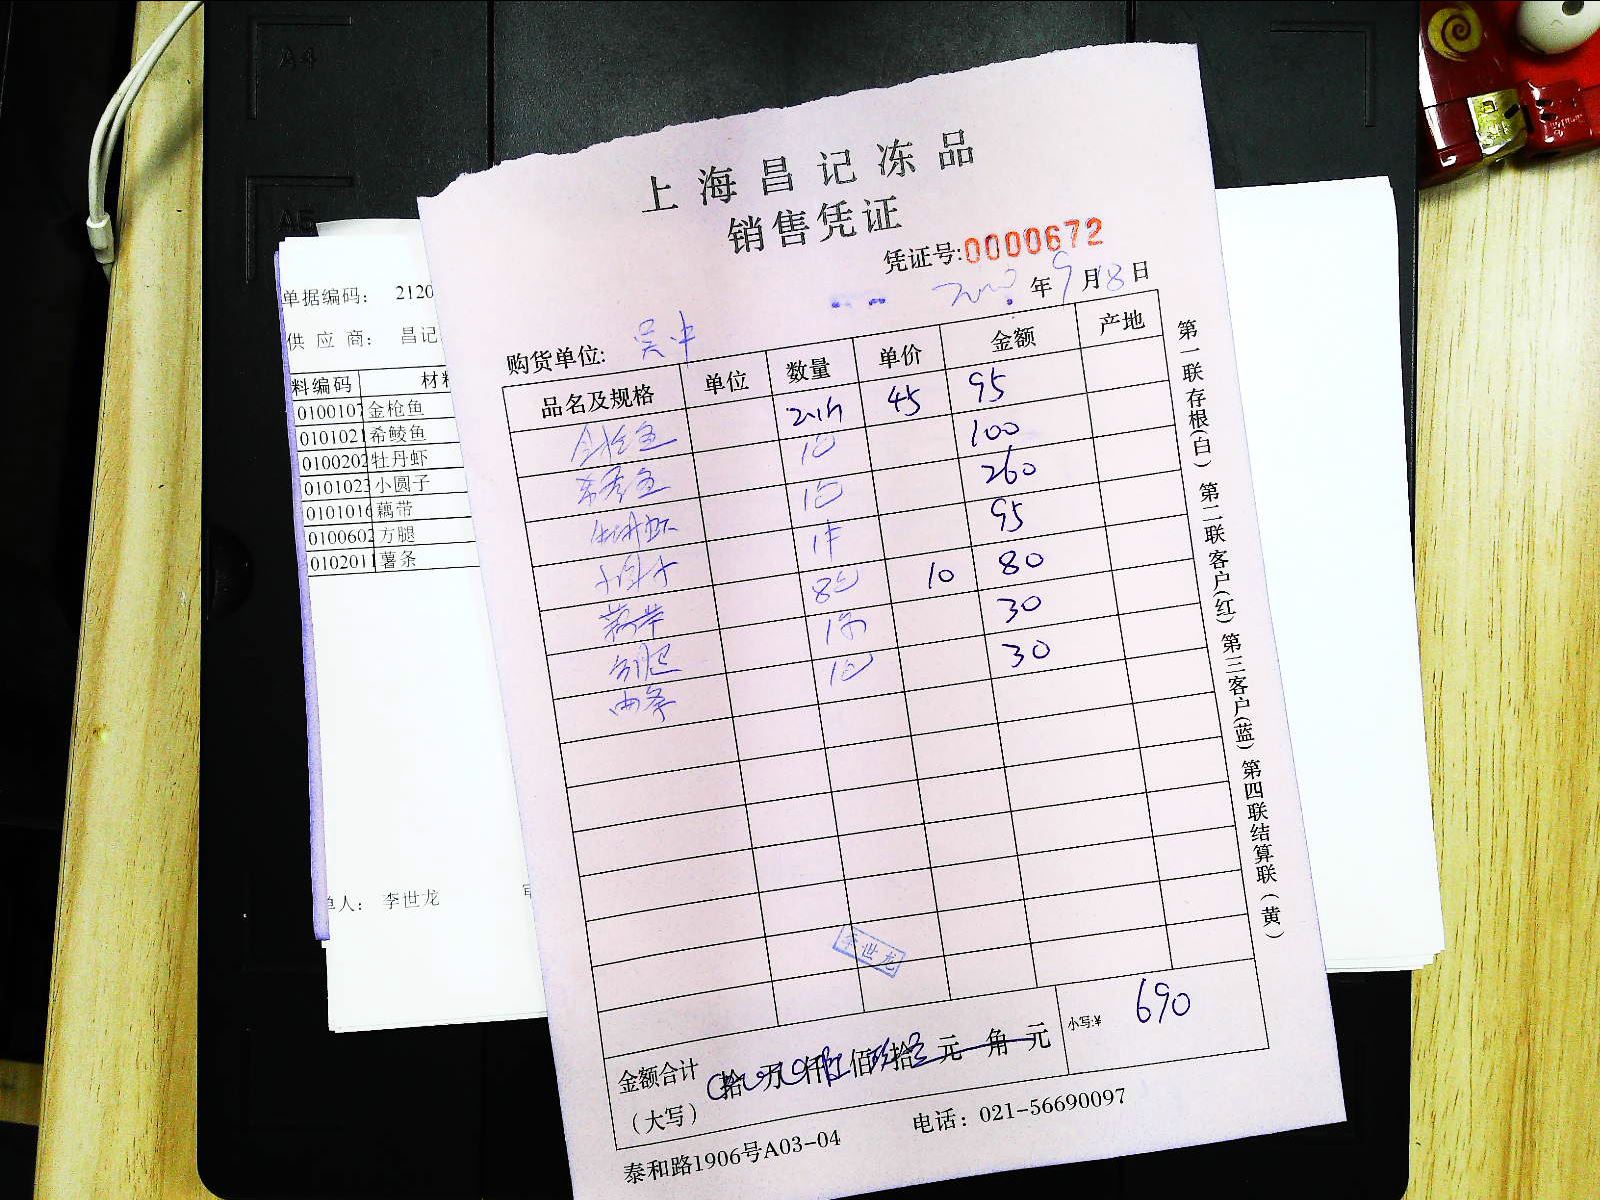 A4
A5
上海昌记冻品
销售凭证
凭证号:0000672
年9月18日
购货单位: 吴中
品名及规格 单位 数量 单价 金额 产地
金枪鱼 45 95
希鲮鱼 1包 100
牡丹虾 1包 260
小圆子 1件 95
藕带 8包 10 80
方腿 30
1包 30
李世龙
金额合计
(大写)
拾 万 仟 佰 拾 元 角 元
小写:¥ 690
泰和路1906号A03-04 电话: 021-56690097
第一联存根(白) 第二联客户(红) 第三客户(蓝) 第四联结算联(黄)
单据编码: 2120
供应商: 昌记
料编码
0100107 金枪鱼
0101021 希鲮鱼
0100202 牡丹虾
0101023 小圆子
0101016 藕带
0100602 方腿
0102011 薯条
单人: 李世龙